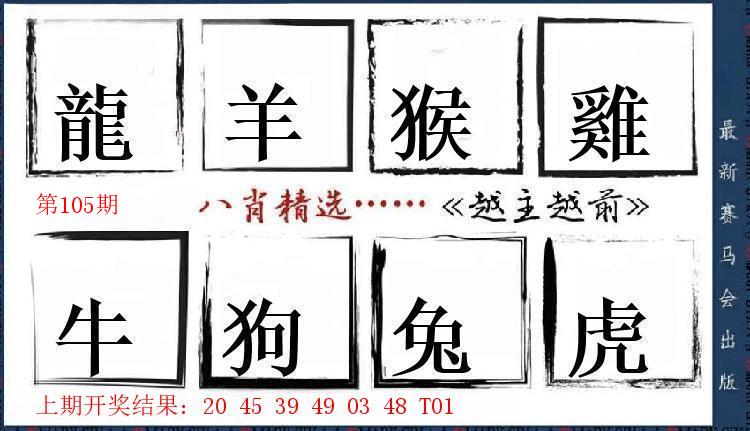 龍 羊 猴 雞
第105期 八肖精选……《越主越前》
牛 狗 兔 虎
上期开奖结果：20 45 39 49 03 48 T01
最新赛马会出版